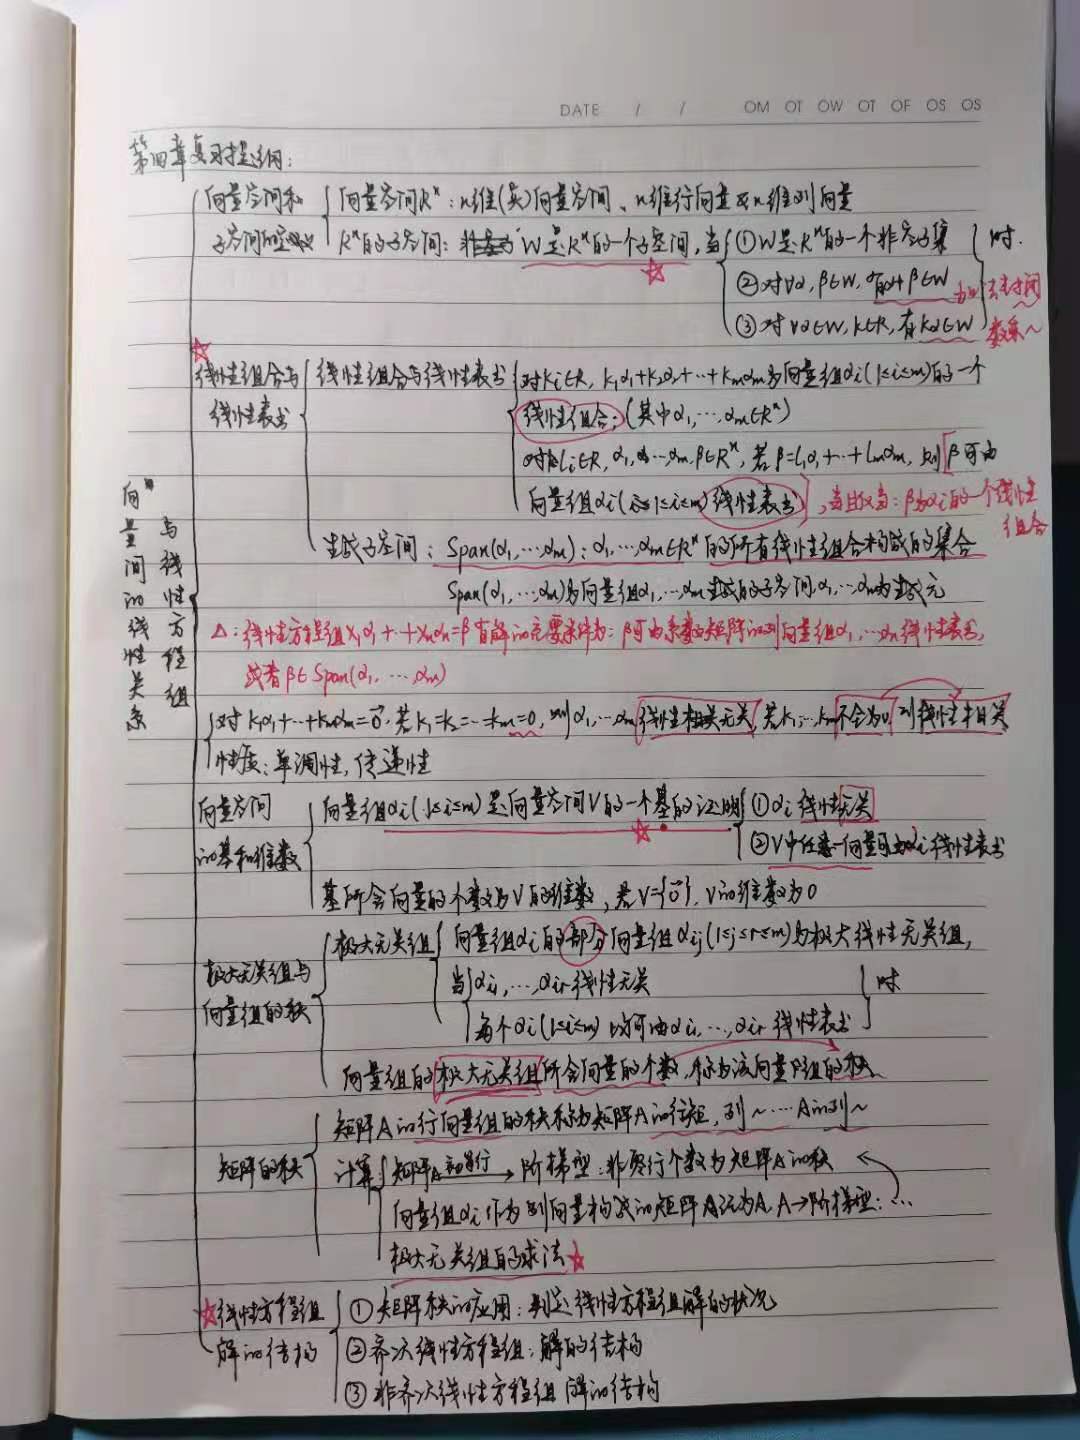 DATE / / OM OT OW OT OF OS OS
第四章复习提纲:
向量空间和
子空间的定义
向量空间Rⁿ:n维(实)向量空间、n维行向量或n维列向量
Rⁿ的子空间: W是Rⁿ的一个子空间,当
①W是Rⁿ的一个非空子集
②对∀α,β∈W,有α+β∈W
③对∀α∈W,k∈R,有kα∈W
时.
加法封闭
数乘~
线性组合与
线性表出
线性组合与线性表出
对Ki∈R, K₁α₁+K₂α₂+…+Kmαm为向量组αi(1≤i≤m)的一个
线性组合;(其中α₁,…,αm∈Rⁿ)
对li∈R, α₁,…,αm,β∈Rⁿ,若β=l₁α₁+…+lmαm,则β可由
向量组αi(1≤i≤m)线性表出,当且仅当:β为αi的一个线性
组合
生成子空间:Span(α₁,…,αm):α₁,…,αm∈Rⁿ的所有线性组合构成的集合
Span(α₁,…,αm)为向量组α₁,…,αm生成的子空间,α₁,…,αm为生成元
△:线性方程组x₁α₁+…+xnαn=β有解的充要条件为:β可由系数矩阵的列向量组α₁,…,αn线性表出,
或者β∈Span(α₁,…,αm)
向量间的线性关系
与线性方程组
对K₁α₁+…+Kmαm=0⃗,若K₁=K₂=…=Km=0,则α₁,…αm线性无关,若K₁…Km不全为0,则线性相关
性质:单调性,传递性
向量空间
的基和维数
向量组αi(1≤i≤m)是向量空间V的一个基的证明
①αi线性无关
②V中任意一向量可由αi线性表出
基所含向量的个数为V的维数,若V={0⃗},V的维数为0
极大无关组与
向量组的秩
极大无关组
向量组αi的部分向量组αij(1≤j≤r≤m)为极大线性无关组,
当
αi₁,…,αir线性无关
每个αi(1≤i≤m)均可由αi₁,…,αir线性表出
时
向量组的极大无关组所含向量的个数,称为该向量组的秩
矩阵的秩
矩阵A的行向量组的秩称为矩阵A的行秩,列~…A的列~
计算
矩阵A 初等行→阶梯型:非零行个数为矩阵A的秩
向量组αi作为列向量构成的矩阵记为A,A→阶梯型:…
极大无关组的求法
线性方程组
解的结构
①矩阵秩的应用:判定线性方程组解的状况
②齐次线性方程组:解的结构
③非齐次线性方程组解的结构